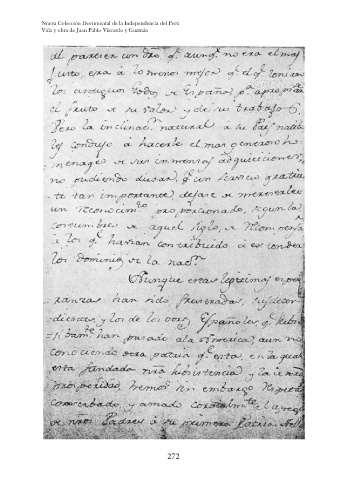 Nueva Colección Documental de la Independencia del Perú
Vida y obra de Juan Pablo Viscardo y Guzmán
al parecer un dro q.e aunq.e no era el mas
justo, era a lo menos mejor q.e el q.e tenian
los antiguos Godos de España p.a apropiarse
el fruto de su valor y de su trabajo
Pero la inclinac.n natural a su Pais nativo
los condujo a hacerle el mas generoso ho-
menage de sus inmensas adquisiciones,
no pudiendo dudar, q.e un servicio gratui-
to tan importante dejase de merecerles
un reconocim.to proporcionado, segun la
costumbre de aquel siglo, de recompensar
a los q.e havian contribuido a estender
los dominios de la nac.n
Aunque estas legitimas espe-
ranzas han sido frustradas, sus decen-
dientes, y los de los otros Españoles q.e
han pasado a la America, aun no
conociendo otra patria q.e esta, en la qual
esta fundada nra subsistencia y la de nra
hemos sin embargo respetado
conserbado y amado el apego
de nros Padres a su primera Patria
272